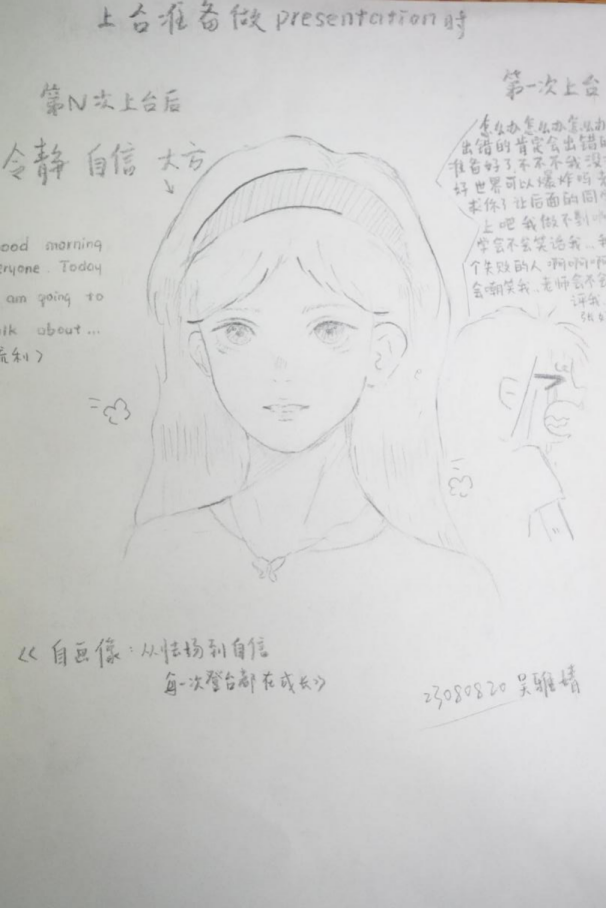 上台准备做presentation时
第N次上台后
冷静 自信 大方
good morning
everyone. Today
am going to
talk about...
流利)
第一次上台
怎么办怎么办怎么办
出错的肯定会出错的
准备好了不不不我没
好世界可以爆炸吗
求你了让后面的同
上吧我做不到
学会不会笑话我..我
个失败的人啊啊啊
会嘲笑我..老师会不会
评我
《自画像:从怯场到自信
每一次登台都在成长》
23080820 吴雅婧